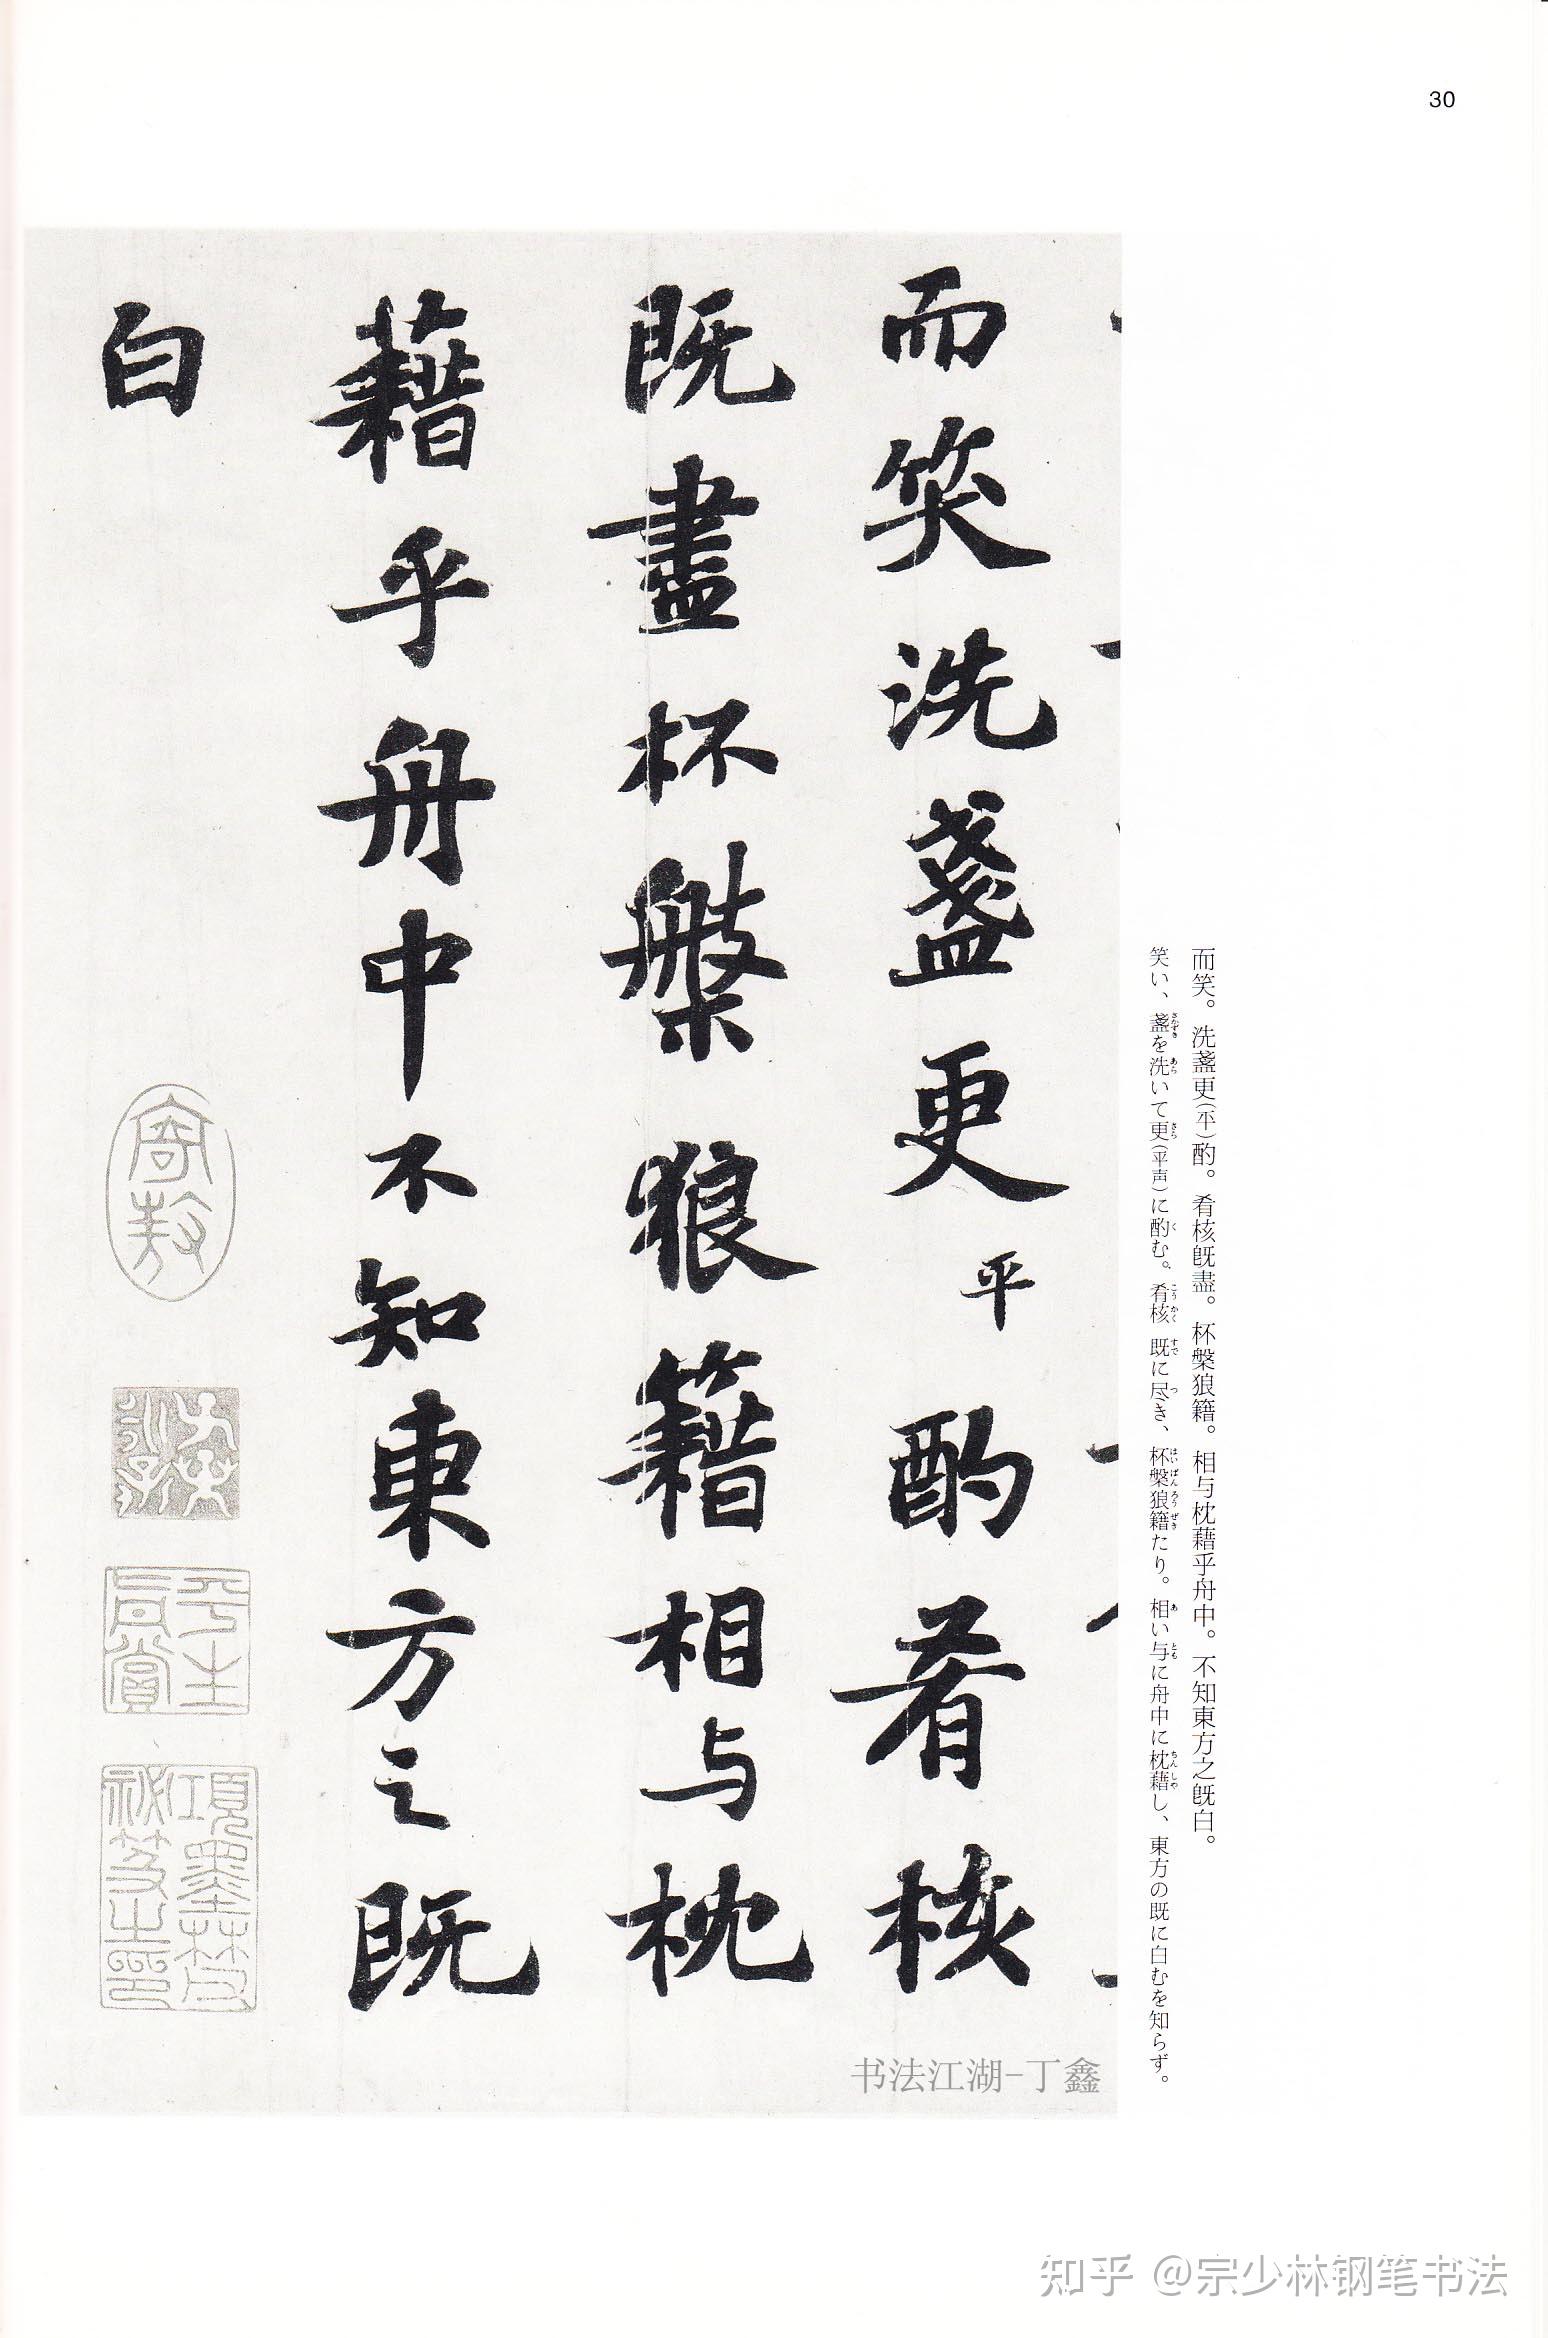 30
而笑。洗盞更(平)酌。肴核既盡。杯槃狼籍。相与枕藉乎舟中。不知東方之既白。
笑い、盞を洗いて更(平声)に酌む。肴核 既に尽き、杯槃狼籍たり。相い与に舟中に枕藉し、東方の既に白むを知らず。
而笑洗盞更平酌肴核
既盡杯槃狼籍相与枕
藉乎舟中不知東方之既
白
平生
真賞
項墨林父
祕笈之印
书法江湖-丁鑫
知乎 @宗少林钢笔书法